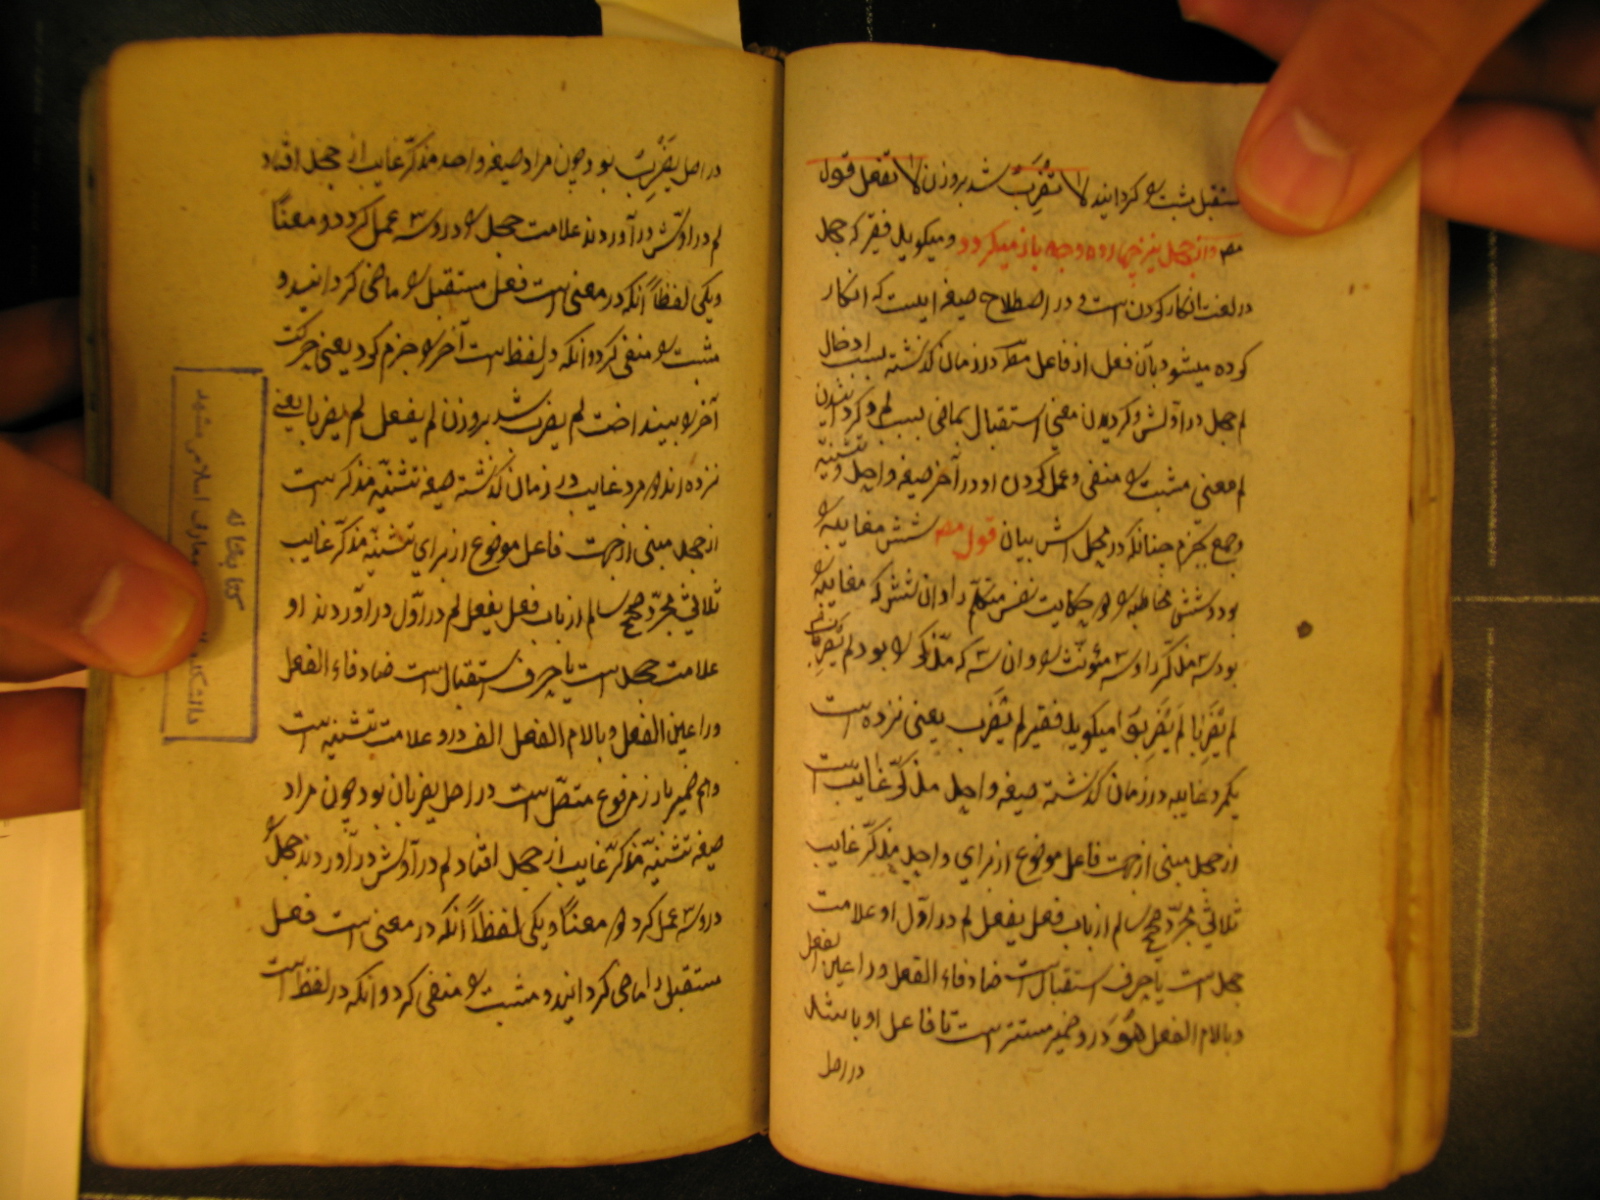 مستقبل مثبت را گردانیدند لا تضرب شد بر وزن لا تفعل قوله
مص واز جحد نیز چهارده وجه باز میکردد و میکوید فقیر که جحد
در لغت انکار کردن است و در اصطلاح صیغه ایست که انکار
کرده میشود بآن فعل از فاعل در زمان کذشته بسبب ادخال
لم جحد در اولش و کردیدن معنی استقبال بماضی بسبب لم و کردانیدن
لم معنی مثبت را منفی و عمل کردن او در آخر صیغه واحد و تثنیه
و جمع بجزم چنانکه در محل اش بیان قوله مص شش مغایبه را
بود و شش مخاطبه را و دو حکایت نفس متکلم را و ان شش که مغایبه را
بود سه مذکر را و سه مؤنث را و ان سه که مذکر را بود لم یضرب
لم یضربا لم یضربوا میکوید فقیر لم یضرب یعنی نزده است
یکمرد غایب در زمان کذشته صیغه واحد مذکر غایب است
از جحد مبنی از جهت فاعل موضوع از برای واحد مذکر غایب
ثلاثی مجرد صحیح سالم از باب فعل یفعل لم در اول او علامت
جحد است یا حرف استقبال است ضاد فاء الفعل ورا عین الفعل
وبا لام الفعل هو درو ضمیر مستتر است تا فاعل او باشد
در اصل
در اصل یضرب بود چون مراد صیغه واحد مذکر غایب از جحد افتاد
لم در اولش در آوردند علامت جحد را درو سه عمل کرد دو معنا
ویکی لفظا آنکه در معنی است فعل مستقبل را ماضی کردانید و
مثبت را منفی کرد و آنکه در لفظ است آخر را جزم کرد یعنی حرکت
آخر را بینداخت لم یضرب شد بر وزن لم یفعل لم یضربا یعنی
نزده اند دو مرد غایب در زمان کذشته صیغه تثنیه مذکر است
از جحد مبنی از جهت فاعل موضوع از برای تثنیه مذکر غایب
ثلاثی مجرد صحیح سالم از باب فعل یفعل لم در اول در آوردند او
علامت جحد است یا حرف استقبال است ضاد فاء الفعل
ورا عین الفعل وبا لام الفعل الف درو علامت تثنیه است
وهم ضمیر بارز مرفوع متصل است در اصل یضربان بود چون مراد
صیغه تثنیه مذکر غایب از جحد افتاد لم در اولش در آوردند جحد را
درو سه عمل کرد دو معنا ویکی لفظا آنکه در معنی است فعل
مستقبل را ماضی کردانید و مثبت را منفی کرد و آنکه در لفظ است
کتابخانه
دانشکده معارف اسلامی مشهد